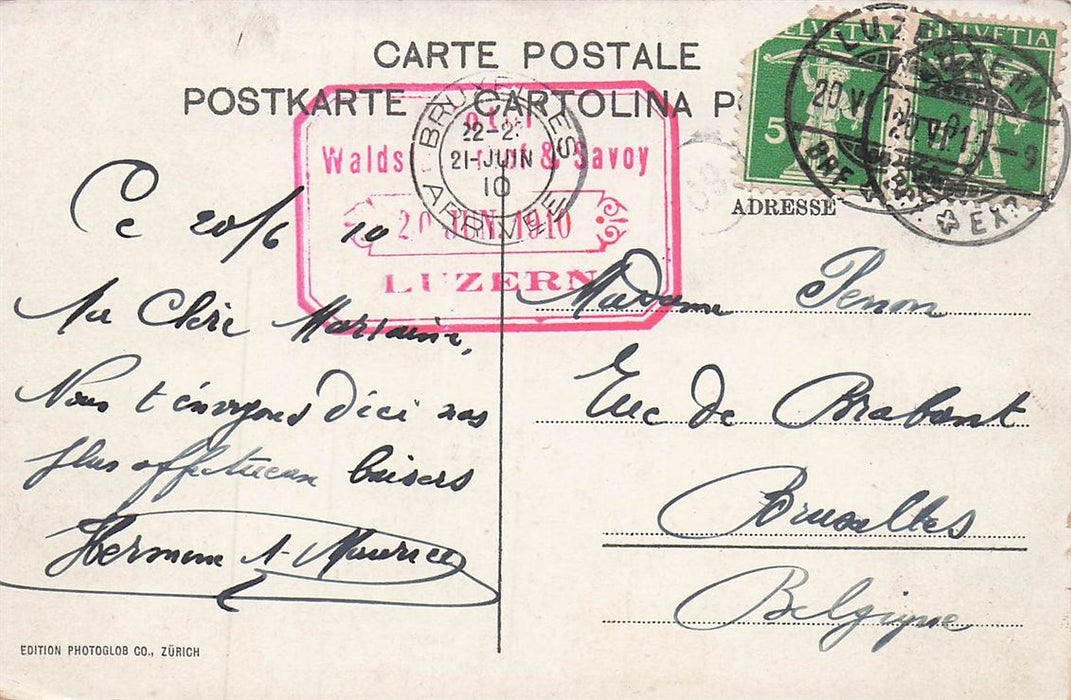 CARTE POSTALE
POSTKARTE CARTOLINA P
HELVETIA
HELVETIA
5
LUZERN
20.VI.10
BRF
LUZERN
20.VI.10 -9
EXP
BRUXELLES
22-2
21-JUIN
10
ARRIVEE
Walds & Savoy
20 JUN. 1910
LUZERN
ADRESSE
Ce 20/6 10
Ma Chère
Nous t'envoyons d'ici nos
plus affectueux baisers
Hermine & Maurice
Madame Penon
Rue de Brabant
Bruxelles
Belgique
EDITION PHOTOGLOB CO., ZÜRICH